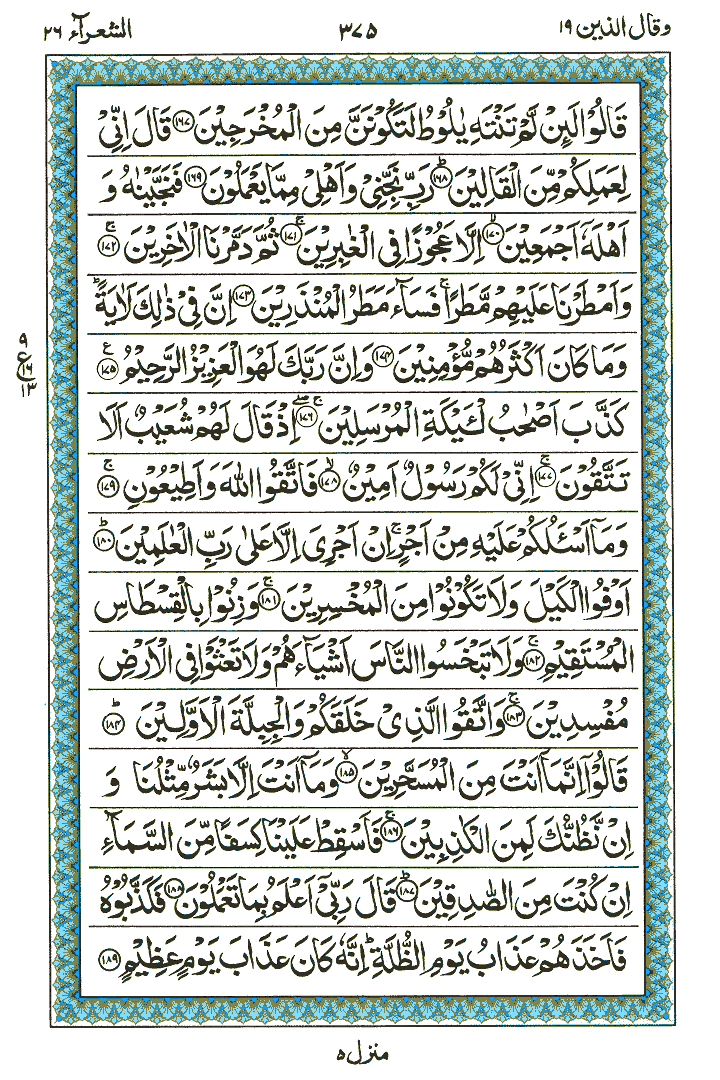 وقال الذين ١٩ ٣٧٥ الشعرآء ٢٦
قَالُوْا لَئِنْ لَّمْ تَنْتَهِ يٰلُوْطُ لَتَكُوْنَنَّ مِنَ الْمُخْرَجِيْنَ ﴿١٦٧﴾ قَالَ اِنِّيْ
لِعَمَلِكُمْ مِّنَ الْقَالِيْنَ ؕ﴿١٦٨﴾ رَبِّ نَجِّنِيْ وَاَهْلِيْ مِمَّا يَعْمَلُوْنَ ﴿١٦٩﴾ فَنَجَّيْنٰهُ وَ
اَهْلَهٗۤ اَجْمَعِيْنَ ۙ﴿١٧٠﴾ اِلَّا عَجُوْزًا فِي الْغٰبِرِيْنَ ۚ﴿١٧١﴾ ثُمَّ دَمَّرْنَا الْاٰخَرِيْنَ ۚ﴿١٧٢﴾
وَاَمْطَرْنَا عَلَيْهِمْ مَّطَرًا ۚ فَسَآءَ مَطَرُ الْمُنْذَرِيْنَ ﴿١٧٣﴾ اِنَّ فِيْ ذٰلِكَ لَاٰيَةً ؕ
وَمَا كَانَ اَكْثَرُهُمْ مُّؤْمِنِيْنَ ﴿١٧٤﴾ وَاِنَّ رَبَّكَ لَهُوَ الْعَزِيْزُ الرَّحِيْمُ ﴿١٧٥﴾ ع
٩
ع
١٦
١٣
كَذَّبَ اَصْحٰبُ لْـَٔيْكَةِ الْمُرْسَلِيْنَ ۚۖ﴿١٧٦﴾ اِذْ قَالَ لَهُمْ شُعَيْبٌ اَلَا
تَتَّقُوْنَ ۚ﴿١٧٧﴾ اِنِّيْ لَكُمْ رَسُوْلٌ اَمِيْنٌ ۙ﴿١٧٨﴾ فَاتَّقُوا اللّٰهَ وَاَطِيْعُوْنِ ۚ﴿١٧٩﴾
وَمَاۤ اَسْـَٔلُكُمْ عَلَيْهِ مِنْ اَجْرٍ ۚ اِنْ اَجْرِيَ اِلَّا عَلٰى رَبِّ الْعٰلَمِيْنَ ؕ﴿١٨٠﴾
اَوْفُوا الْكَيْلَ وَلَا تَكُوْنُوْا مِنَ الْمُخْسِرِيْنَ ۚ﴿١٨١﴾ وَزِنُوْا بِالْقِسْطَاسِ
الْمُسْتَقِيْمِ ۚ﴿١٨٢﴾ وَلَا تَبْخَسُوا النَّاسَ اَشْيَآءَهُمْ وَلَا تَعْثَوْا فِي الْاَرْضِ
مُفْسِدِيْنَ ۚ﴿١٨٣﴾ وَاتَّقُوا الَّذِيْ خَلَقَكُمْ وَالْجِبِلَّةَ الْاَوَّلِيْنَ ؕ﴿١٨٤﴾
قَالُوْۤا اِنَّمَاۤ اَنْتَ مِنَ الْمُسَحَّرِيْنَ ۙ﴿١٨٥﴾ وَمَاۤ اَنْتَ اِلَّا بَشَرٌ مِّثْلُنَا وَ
اِنْ نَّظُنُّكَ لَمِنَ الْكٰذِبِيْنَ ۚ﴿١٨٦﴾ فَاَسْقِطْ عَلَيْنَا كِسَفًا مِّنَ السَّمَآءِ
اِنْ كُنْتَ مِنَ الصّٰدِقِيْنَ ؕ﴿١٨٧﴾ قَالَ رَبِّيْۤ اَعْلَمُ بِمَا تَعْمَلُوْنَ ﴿١٨٨﴾ فَكَذَّبُوْهُ
فَاَخَذَهُمْ عَذَابُ يَوْمِ الظُّلَّةِ ؕ اِنَّهٗ كَانَ عَذَابَ يَوْمٍ عَظِيْمٍ ﴿١٨٩﴾
منزل ٥